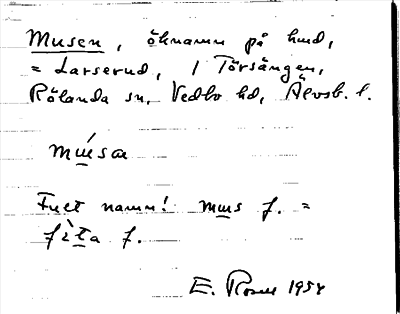 Musen, öknamn på hmd,
= Larserud, 1 Törsängen,
Rölanda sn, Vedbo hd, Älvsb. l.
músa
Fult namn! mus f. =
fìta f.
E. Rosen 1958